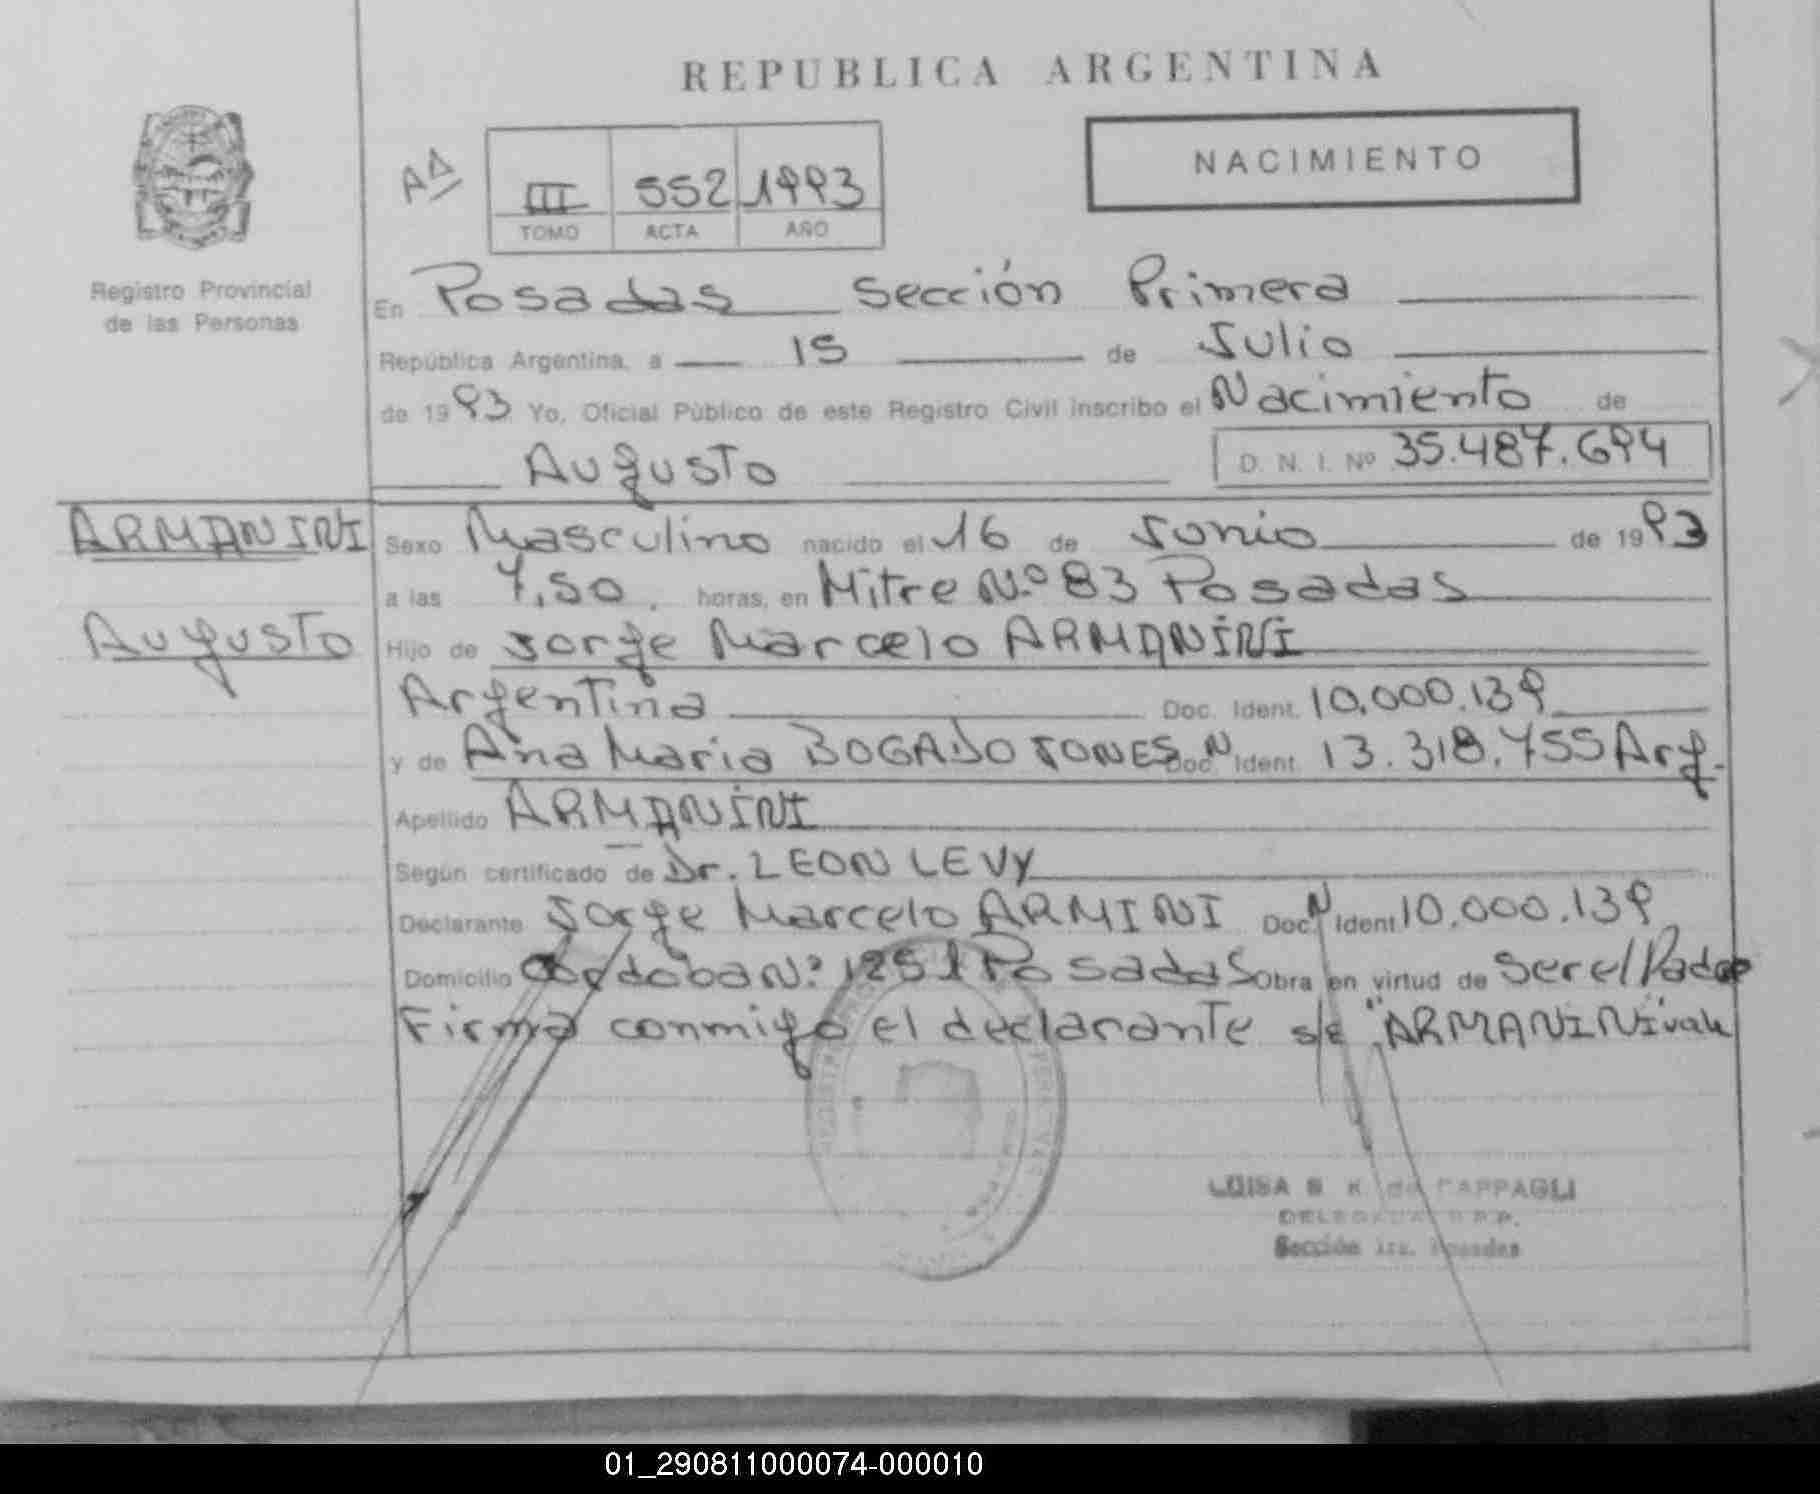 REPUBLICA ARGENTINA
NACIMIENTO
AΔ
III 552 1993
TOMO ACTA AÑO
Registro Provincial
de las Personas
En Posadas Sección Primera
República Argentina, a 15 de Julio
de 1993 Yo, Oficial Público de este Registro Civil inscribo el Nacimiento de
Augusto D. N. I. Nº 35.487.694
ARMANINI
Augusto
Sexo Masculino nacido el 16 de Junio de 1993
a las 7,50. horas, en Mitre Nº 83 Posadas
Hijo de Jorge Marcelo ARMANINI
Argentina Doc. Ident. 10.000.139
y de Ana Maria BOGADO JONES Doc. N Ident. 13.318.755 Arg.
Apellido ARMANINI
Según certificado de Dr. LEON LEVY
Declarante Jorge Marcelo ARMINI Doc. N Ident 10.000.139
Domicilio Cordoba Nº 1251 Posadas Obra en virtud de ser el Padre
Firma conmigo el declarante s/e "ARMANINI" vale
LUISA S K de CAPPAGLI
DELEGADA R.P.P.
Sección 1ra. Posadas
01_290811000074-000010